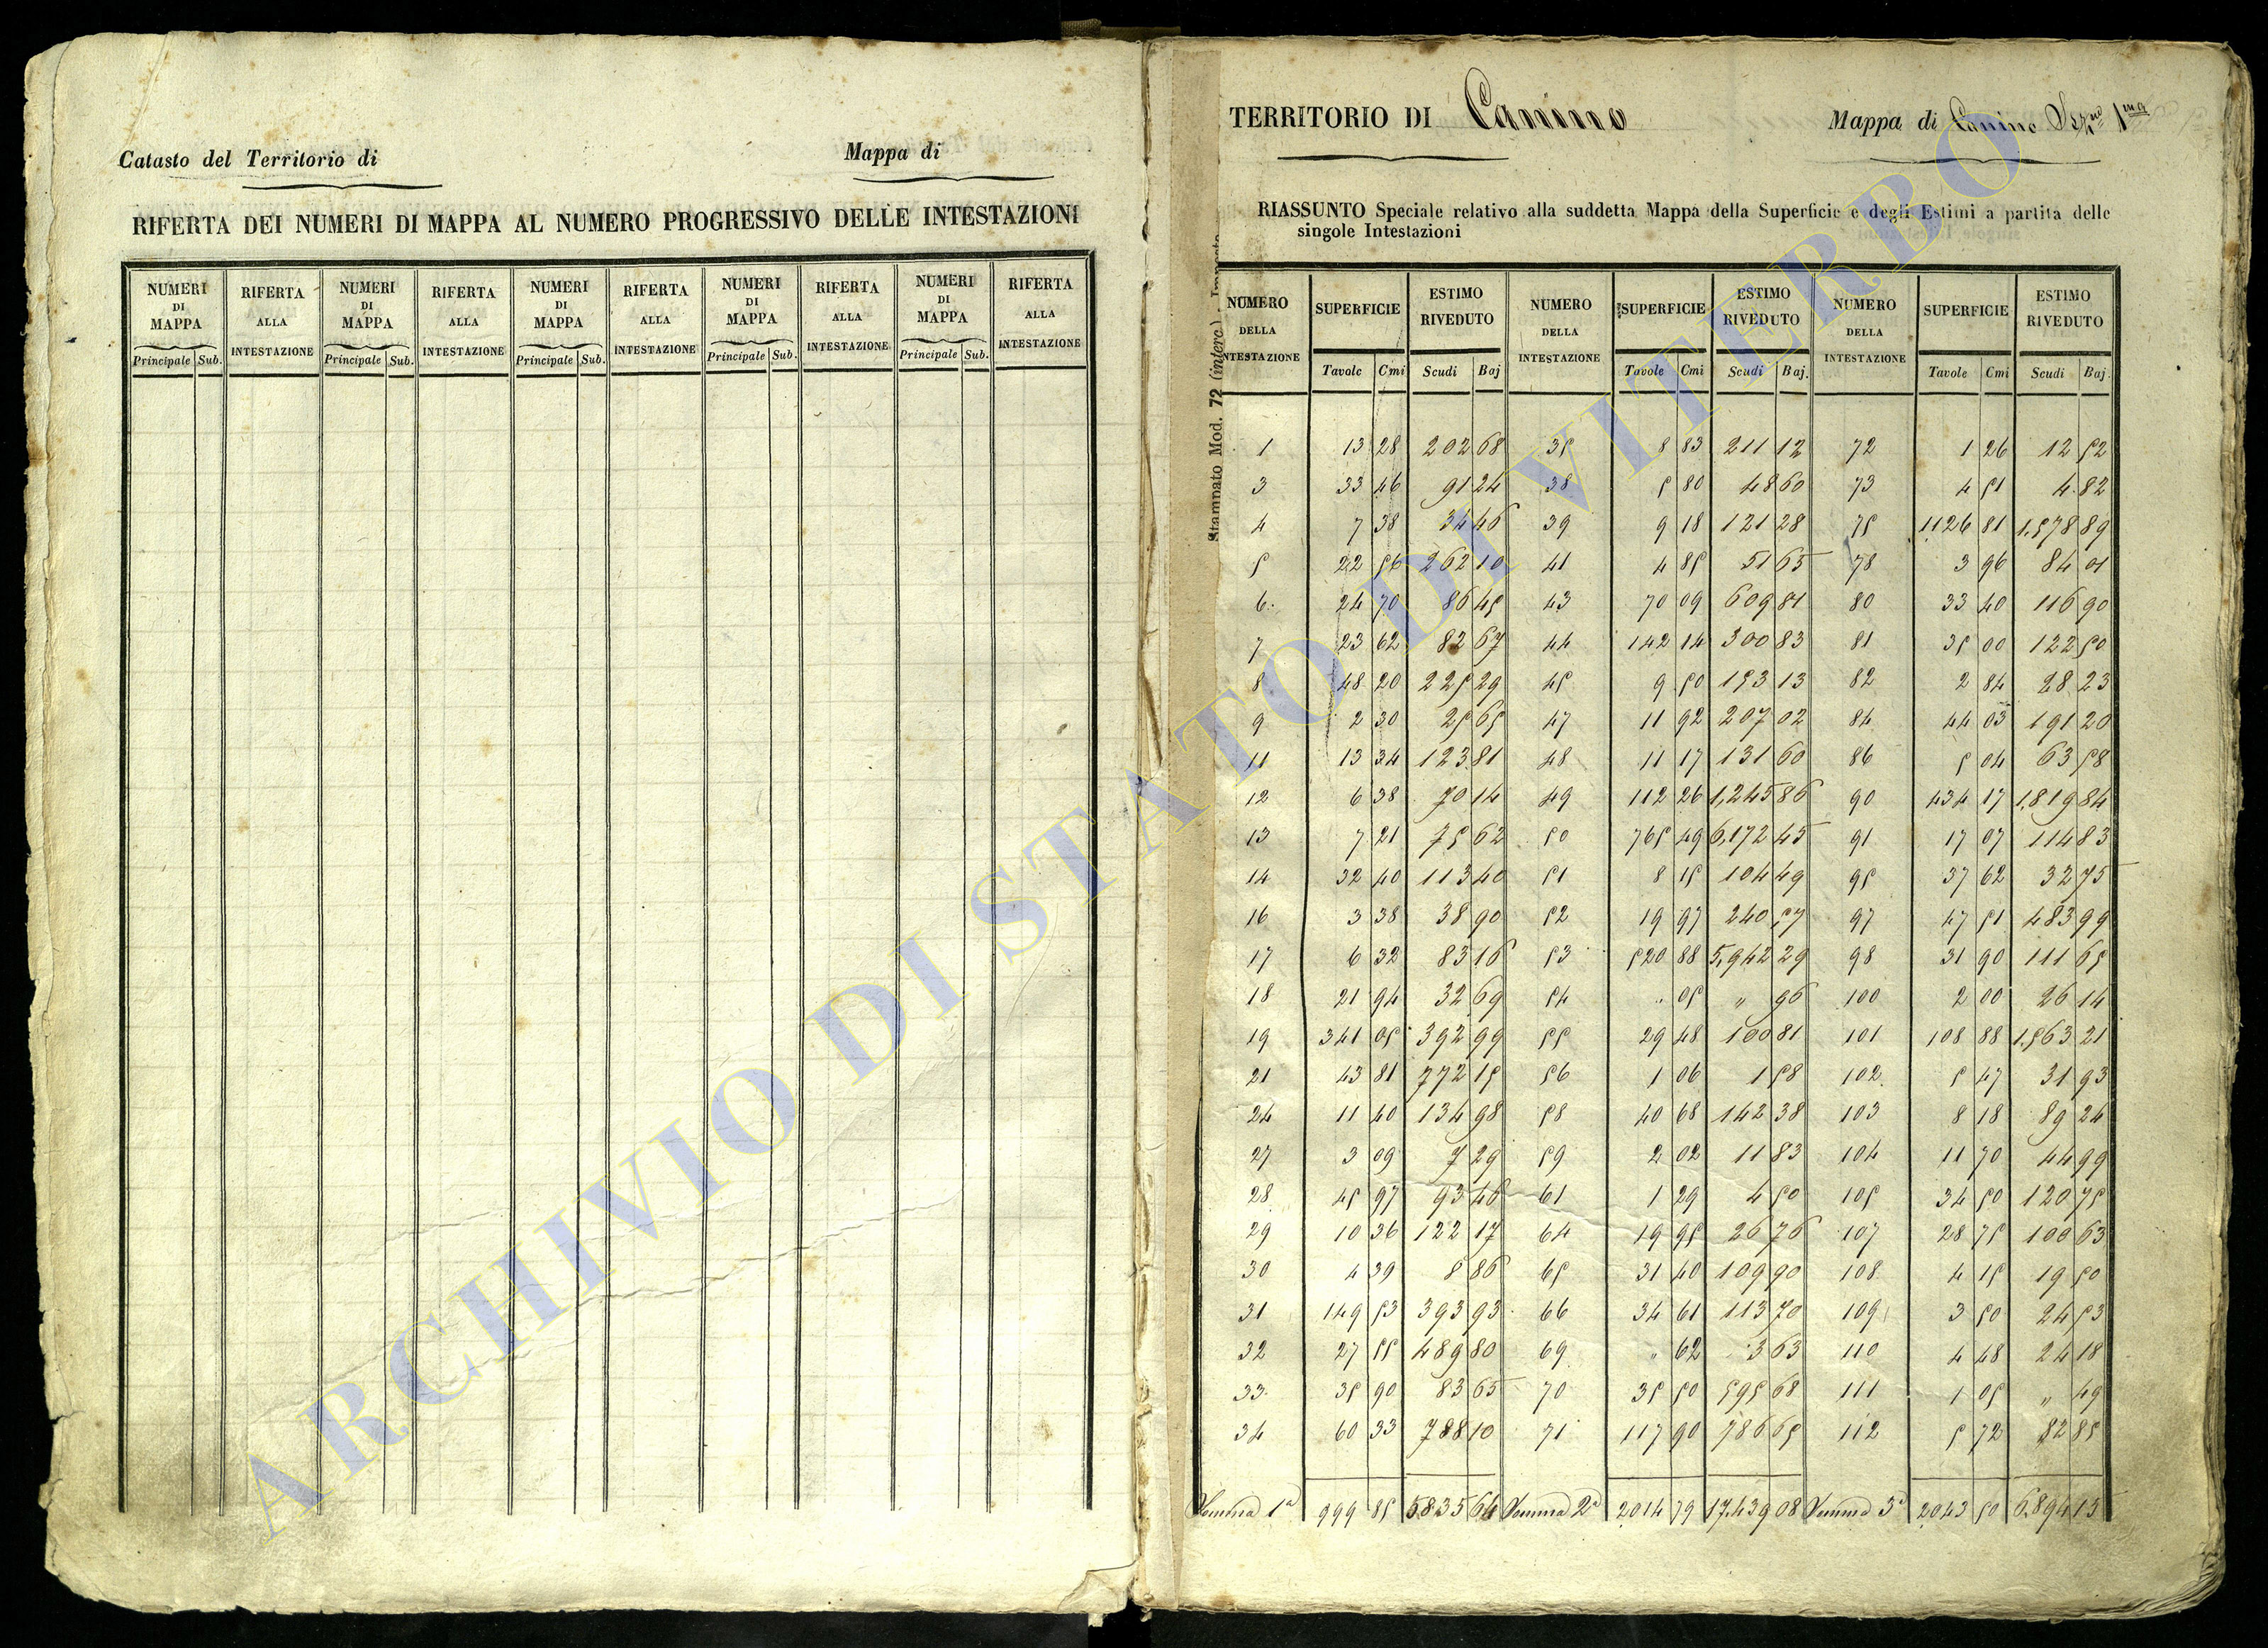 Catasto del Territorio di
Mappa di
RIFERTA DEI NUMERI DI MAPPA AL NUMERO PROGRESSIVO DELLE INTESTAZIONI
NUMERI DI MAPPA RIFERTA ALLA INTESTAZIONE NUMERI DI MAPPA RIFERTA ALLA INTESTAZIONE NUMERI DI MAPPA RIFERTA ALLA INTESTAZIONE NUMERI DI MAPPA RIFERTA ALLA INTESTAZIONE NUMERI DI MAPPA RIFERTA ALLA INTESTAZIONE
Principale Sub. Principale Sub. Principale Sub. Principale Sub. Principale Sub.
TERRITORIO DI Canino
Mappa di Canino Sezne 1ma
RIASSUNTO Speciale relativo alla suddetta Mappa della Superficie e degli Estimi a partita delle
singole Intestazioni
Stampato Mod. 72 (interc.)
NUMERO DELLA NTESTAZIONE SUPERFICIE ESTIMO RIVEDUTO NUMERO DELLA INTESTAZIONE SUPERFICIE ESTIMO RIVEDUTO NUMERO DELLA INTESTAZIONE SUPERFICIE ESTIMO RIVEDUTO
Tavole Cmi Scudi Baj Tavole Cmi Scudi Baj. Tavole Cmi Scudi Baj.
1 13 28 202 68 35 8 83 211 12 72 1 26 12 52
3 33 46 91 24 38 5 80 48 60 73 4 51 4 82
4 7 38 34 46 39 9 18 121 28 75 1126 81 1,578 89
5 22 56 262 10 41 4 85 51 65 78 3 96 84 01
6 24 70 86 45 43 70 09 609 81 80 33 40 116 90
7 23 62 82 67 44 142 14 300 83 81 35 00 122 50
8 48 20 225 29 45 9 50 153 13 82 2 84 28 23
9 2 30 25 65 47 11 92 207 02 84 44 03 191 20
11 13 34 123 81 48 11 17 131 60 86 5 04 63 58
12 6 38 70 14 49 112 26 1,245 86 90 434 17 1,819 84
13 7 21 75 62 50 765 49 6,172 45 91 17 07 114 83
14 32 40 113 40 51 8 15 104 49 95 37 62 32 75
16 3 38 38 90 52 19 97 240 57 97 47 51 483 99
17 6 32 83 16 53 520 88 5,942 29 98 31 90 111 65
18 21 94 32 69 54 " 05 " 96 100 2 00 26 14
19 341 05 392 99 55 29 48 100 81 101 108 88 1,563 21
21 43 81 772 15 56 1 06 1 58 102 5 47 31 93
24 11 40 134 98 58 40 68 142 38 103 8 18 89 24
27 3 09 7 29 59 2 02 11 83 104 11 70 44 99
28 45 97 93 46 61 1 29 4 50 105 34 50 120 75
29 10 36 122 17 64 19 95 26 76 107 28 75 100 63
30 4 39 8 86 65 31 40 109 90 108 4 15 19 50
31 149 53 393 93 66 34 61 113 70 109 3 50 24 53
32 27 55 489 80 69 " 62 3 63 110 4 48 24 18
33 35 90 83 65 70 35 50 595 68 111 1 05 " 49
34 60 33 788 10 71 117 90 786 65 112 5 72 82 85
Somma 1a 999 85 5835 64 Somma 2a 2014 79 17,439 08 Somma 3a 2043 50 6,894 15
ARCHIVIO DI STATO DI VITERBO